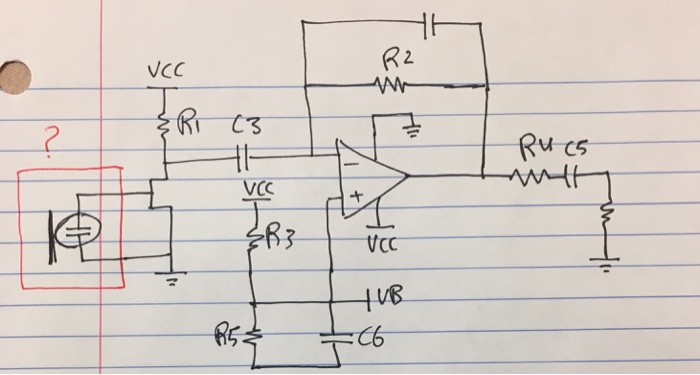 R2
VCC
R1
C3
?
R4 C5
-
+
VCC
VCC
R3
VB
R5
C6